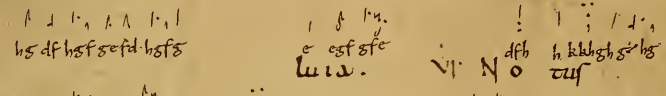 hg df hgf gefd·hgfg e egf gfe dfh h kkhghgehg
luia. V. NO tus